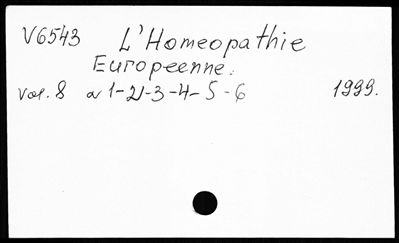 V6543 L'Homeopathie
Europeenne.
vol. 8 N 1-2-3-4-5-6 1999.